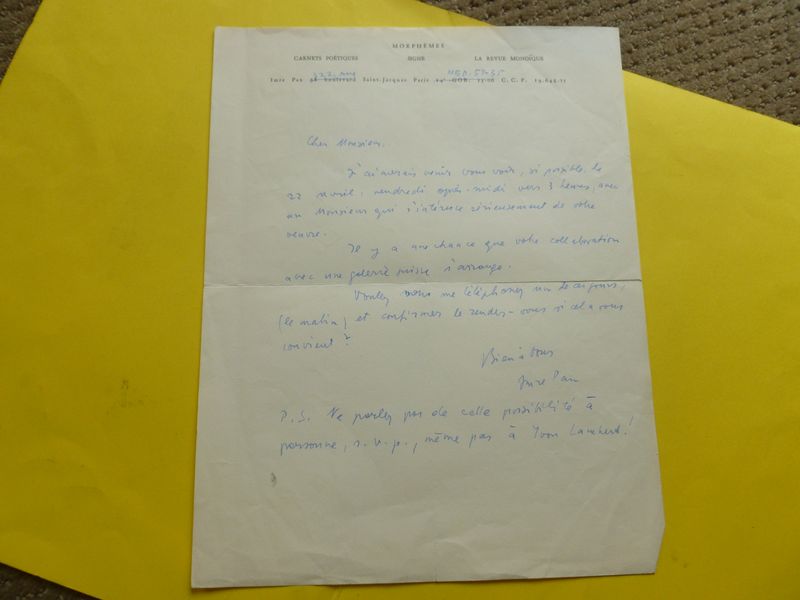 MORPHÈMES
CARNETS POÉTIQUES SIGNE LA REVUE MONOÏQUE
222, rue MED. 59-35
Imre Pan 98 boulevard Saint-Jacques Paris 14e GOB. C. C. P.
Cher Monsieur,
J'aimerais venir vous voir, si possible, le
22 avril, vendredi après-midi vers 3 heures, avec
un Monsieur qui s'intéresse sérieusement de votre
oeuvre.
Il y a une chance que votre collaboration
avec une galerie suisse s'arrange.
Voulez vous me téléphoner un de ces jours,
(le matin) et confirmer le rendez-vous si cela vous
convient?
Bien à vous
Imre Pan
P. S. Ne parlez pas de cette possibilité à
personne, s. v. p., même pas à Yvon Lambert!